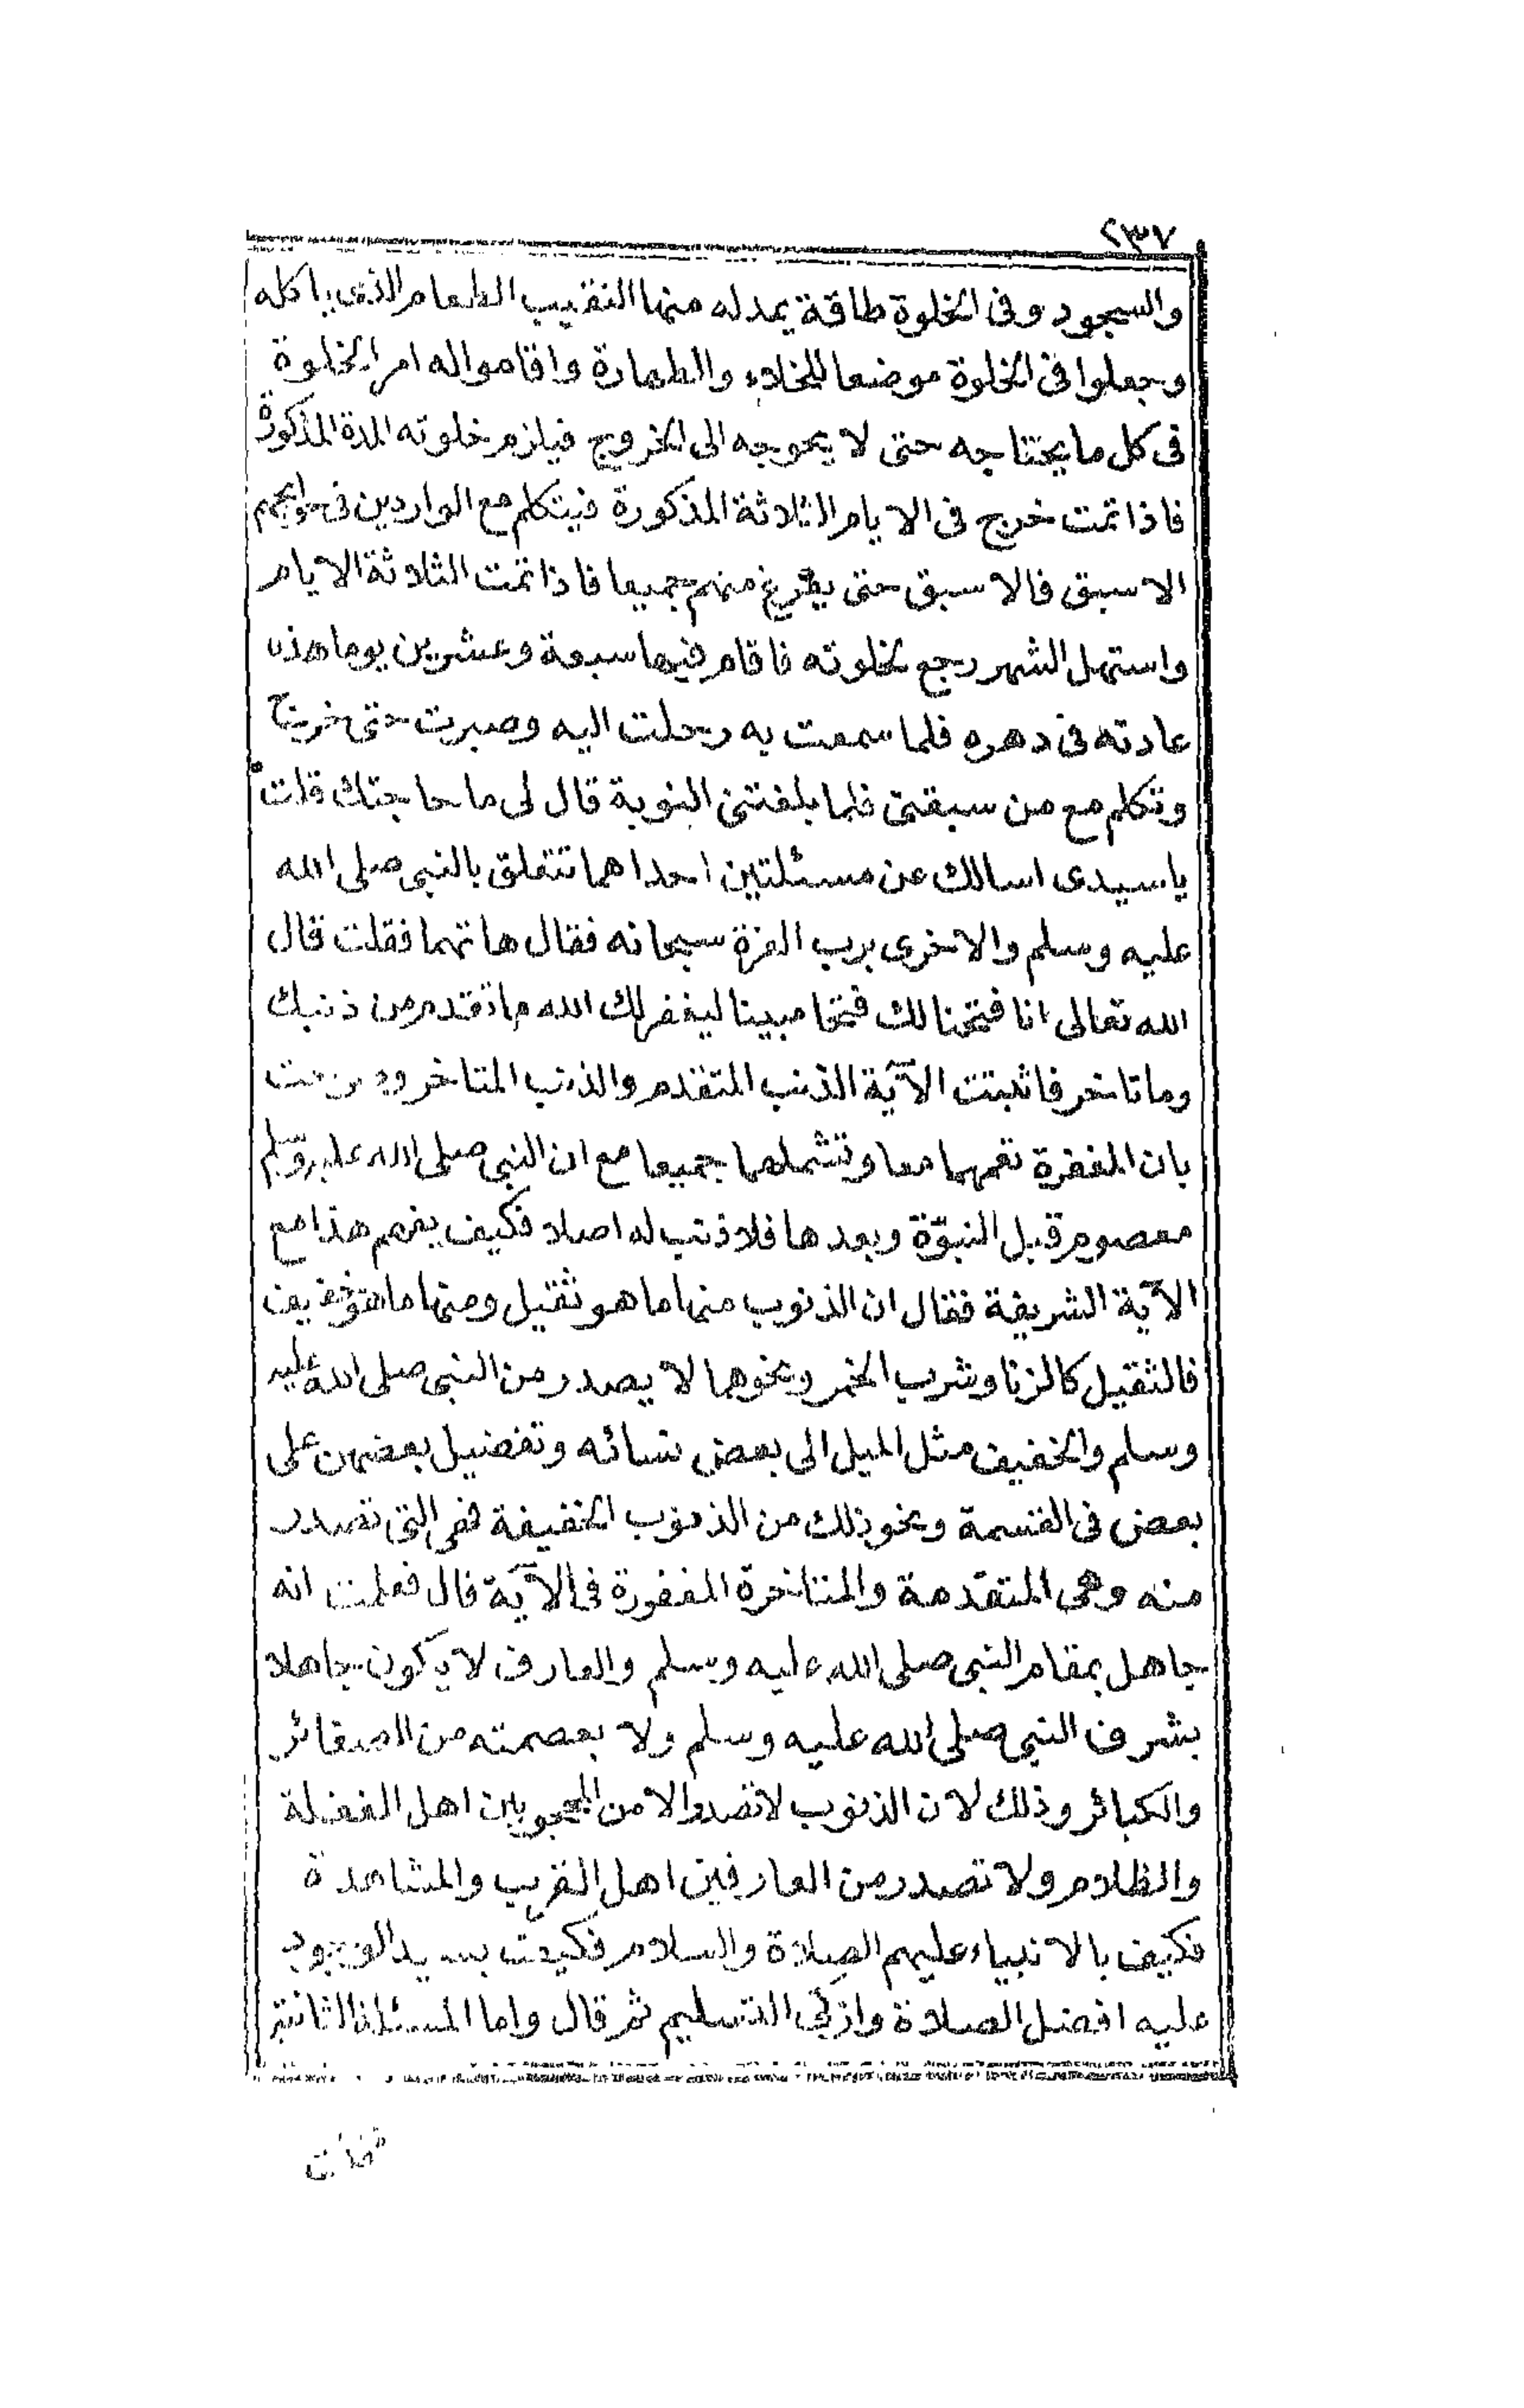 ٢٣٧
والسجود وفى الخلوة طاقة يمد له منها النقيب الطعام الذى ياكله
وجعلوا فى الخلوة موضعا للخلاء والطهارة واقاموا له امر الخلوة
فى كل ما يحتاجه حتى لا يحوجه الى الخروج فيلزم خلوته المدة المذكورة
فاذا تمت خرج فى الايام الثلاثة المذكورة فيتكلم مع الواردين فى حوايجهم
الاسبق فالاسبق حتى يفرغ منهم جميعا فاذا تمت الثلاثة الايام
واستهل الشهر رجع لخلوته فاقام فيها سبعة وعشرين يوما هذه
عادته فى دهره فلما سمعت به رحلت اليه وصبرت حتى خرج
وتكلم مع من سبقنى فلما بلغتنى النوبة قال لى ما حاجتك قلت
يا سيدى اسالك عن مسئلتين احداهما تتعلق بالنبى صلى الله
عليه وسلم والاخرى برب العزة سبحانه فقال هاتهما فقلت قال
الله تعالى انا فتحنا لك فتحا مبينا ليغفر لك الله ما تقدم من ذنبك
وما تاخر فاثبتت الآية الذنب المتقدم والذنب المتاخر وصرحت
بان المغفرة تعمهما معا وتشملهما جميعا مع ان النبى صلى الله عليه وسلم
معصوم قبل النبوّة وبعدها فلا ذنب له اصلا فكيف يفهم هذا مع
الآية الشريفة فقال ان الذنوب منها ما هو ثقيل ومنها ما هو خفيف
فالثقيل كالزنا وشرب الخمر ونحوهما لا يصدر من النبى صلى الله عليه
وسلم والخفيف مثل الميل الى بعض نسائه وتفضيل بعضهن على
بعض فى القسمة ونحو ذلك من الذنوب الخفيفة فهى التى تصدر
منه وهى المتقدمة والمتاخرة المغفورة فى الآية قال فعلمت انه
جاهل بمقام النبى صلى الله عليه وسلم والعارف لا يكون جاهلا
بشرف النبى صلى الله عليه وسلم ولا بعصمته من الصغائر
والكبائر وذلك لان الذنوب لا تصدر الا من المحجوبين اهل الغفلة
والظلام ولا تصدر من العارفين اهل القرب والمشاهدة
فكيف بالانبياء عليهم الصلاة والسلام فكيف بسيد الوجود
عليه افضل الصلاة وازكى التسليم ثم قال واما المسئلة الثانية